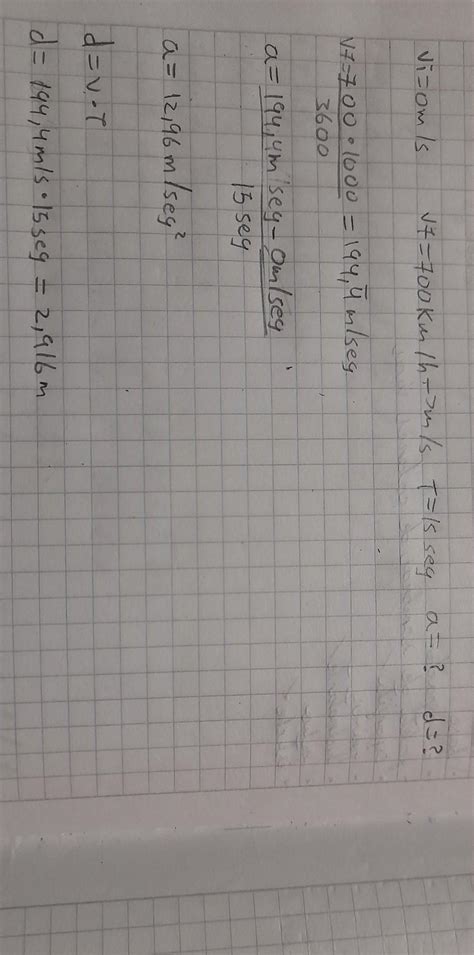 vi=0m/s vf=700Km/h->m/s T=15 seg a=? d=?
vf=700·1000 = 194,4̄ m/seg
3600
a=194,4m/seg-0m/seg
15seg
a=12,96m/seg²
d=v·T
d=194,4m/s·15seg=2,916m